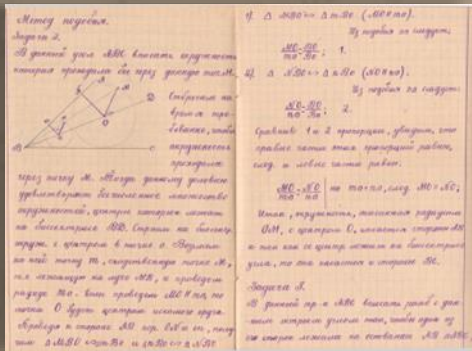 Метод подобия.
Задача 2.
В данный угол ABC вписать окружность
которая проходила бы через данную точку M.
Отбросим на
время тре-
бование, чтобы
окружность
проходила
через точку M. Тогда данному условию
удовлетворяет бесчисленное множество
окружностей, центры которых лежат
на биссектрисе BD. Строим на
с центром в точке o. Возьмем
на ней точку m, сходственную точке M,
лежащую на луче MB, и проведем
радиус mo. проведем MO ∥ mo, то
точка O будет центром искомого круга.
Проведя к стороне AB пер. ON и on, полу-
чим △ MBO ∾ △ mBo и △ NBO ∾ △ nBo
1). △ MBO ∾ △ mBo (MO∥mo).
Из подобия их следует:
MO/mo = BO/Bo; 1.
2). △ NBO ∾ △ nBo (NO∥no).
Из подобия их следует:
NO/no = BO/Bo; 2.
Сравнив 1 и 2 пропорции, увидим, что
правые части этих пропорций равны,
след. и левые части равны:
MO/mo = NO/no но mo=no, след. MO=NO;
Итак, окружность, описанная радиусом
OM, с центром O, касается стороны AB
и так как ее центр лежит на биссектрисе
угла, то она касается и стороны BC.
Задача 3.
В данный △ ABC вписать ромб с дан-
ным острым углом так, чтобы одна из
его сторон лежала на основании AB △ABC